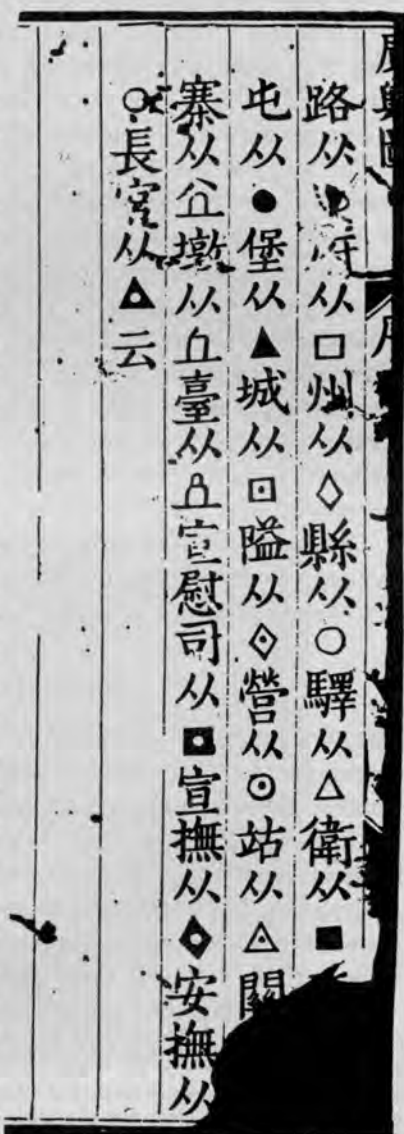 廣輿圖
路从 府从□州从◇縣从○驛从△衛从■
屯从●堡从▲城从⊡隘从⟐營从⊙站从◬關
寨从 墩从 臺从 宣慰司从 宣撫从 安撫从
長官从 云